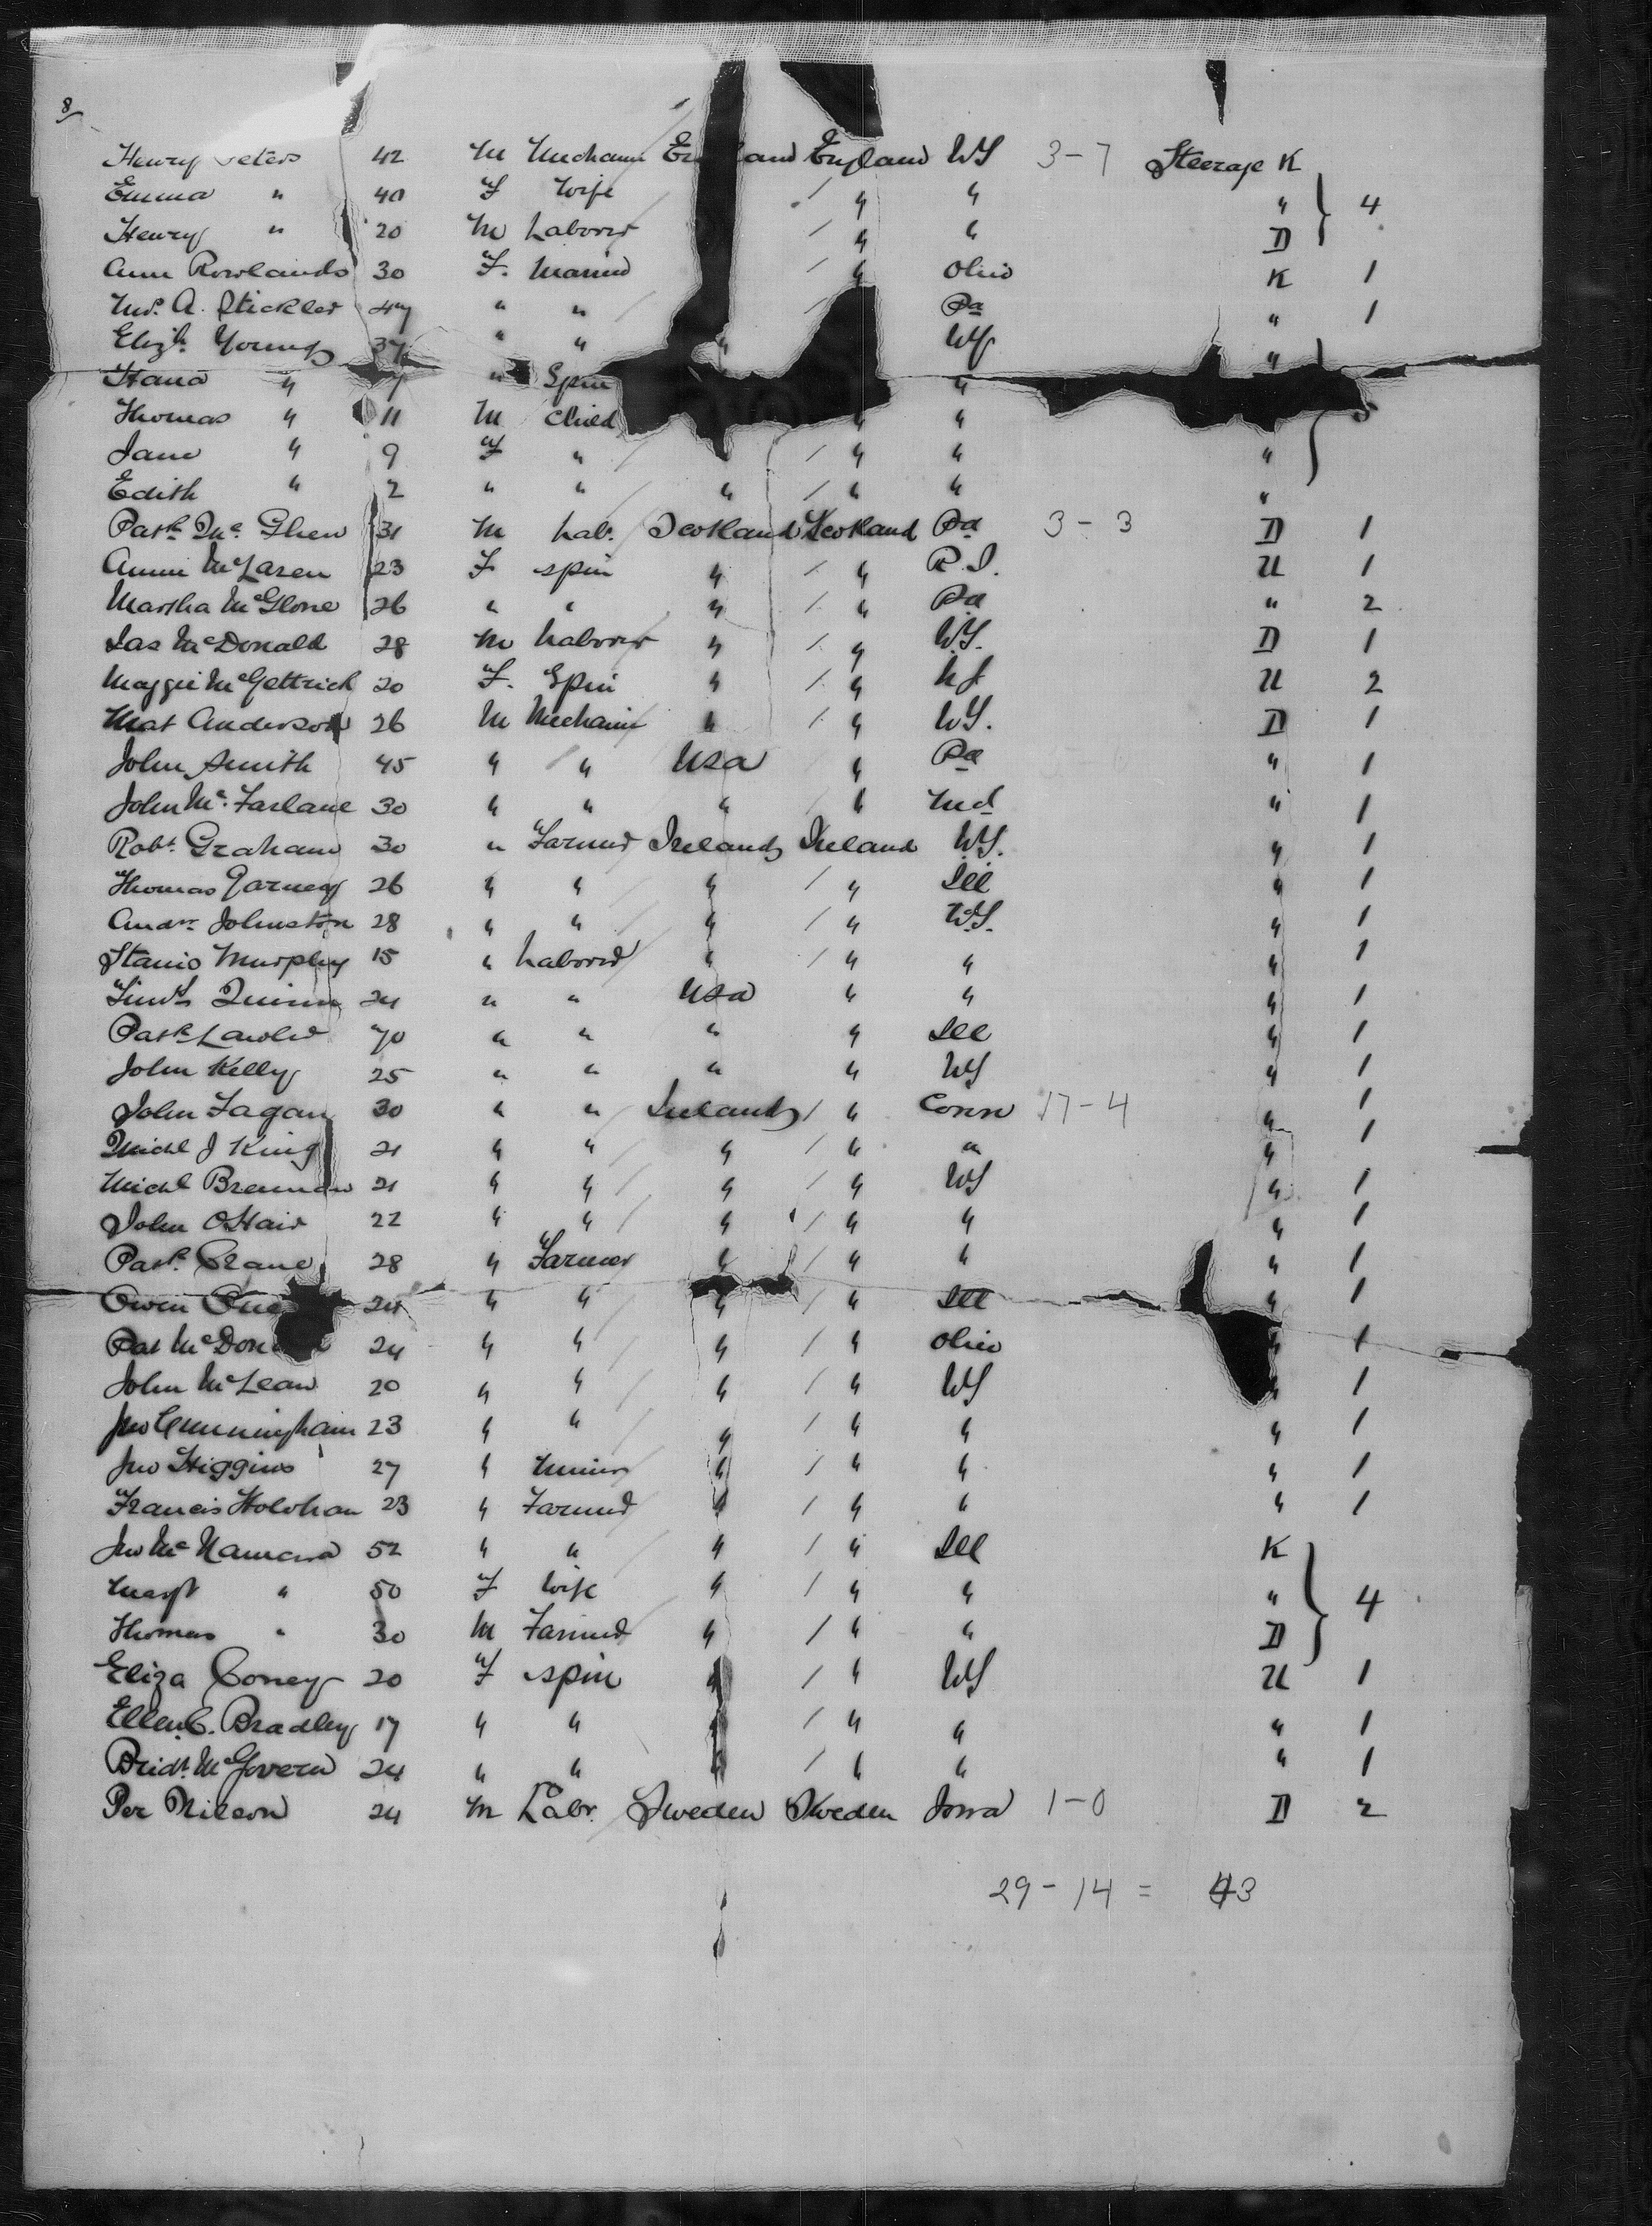 8/
Henry Peters 42 M Mechanic England England NY 3-7 Steerage K
Emma " 40 F Wife / " " " 4
Henry " 20 M Laborer / " " D
Ann Rowlands 30 F. Married / " Ohio K 1
Mrs. A. Stickler 47 " " / Pa " 1
Elizh. Young 37 " " " NY "
Hana " " Spin "
Thomas " 11 M Child " " 5
Jane " 9 F " / " " "
Edith " 2 " " " / " " "
Patk. Mc Ghen 31 M Lab. Scotland Scotland Pa 3-3 D 1
Annie McLaren 23 F spin " / " R.I. U 1
Martha McGlone 26 " " " / " Pa " 2
Jas McDonald 28 M Laborer " / " N.Y. D 1
Maggie McGettrick 20 F. Spin " / " NJ U 2
Mat Anderson 26 M Mechanic " / " NY. D 1
John Smith 45 " " USA " Pa " 1
John Mc. Farlane 30 " " " / " Md " 1
Robt. Graham 30 " Farmer Ireland Ireland N.Y. " 1
Thomas Garney 26 " " " / " Ill " 1
Andw. Johnston 28 " " " / " N.Y. " 1
Stanis Murphy 15 " Laborer " / " " " 1
Quinn 24 " " USA " " " 1
Patk Lawler 70 " " " " Ill " 1
John Kelly 25 " " " " NY " 1
John Fagan 30 " " Ireland / " Conn 17-4 " 1
Michl J King 21 " " " / " " " 1
Michl Brennan 21 " " " / " NY " 1
John OHair 22 " " " / " " " 1
Patk. Crane 28 " Farmer " / " " " 1
Owen 24 " " " / " Ill " 1
Pat McDon 24 " " " / " Ohio " 1
John McLean 20 " " " / " NY " 1
Jno Cunningham 23 " " " / " " " 1
Jno Higgins 27 " Miner " / " " " 1
Francis Holohan 23 " Farmer " / " " " 1
Jno Mc Namara 52 " " " / " Ill K
Margt " 50 F Wife " / " " " 4
Thomas " 30 M Farmer " / " " D
Eliza Coney 20 F spin " / " NY U 1
Ellen C. Bradley 17 " " " / " " " 1
Bridt. McGovern 24 " " " / " " " 1
Per Nilson 24 M Labr. Sweden Sweden Iowa 1-0 D 2
29-14 = 43